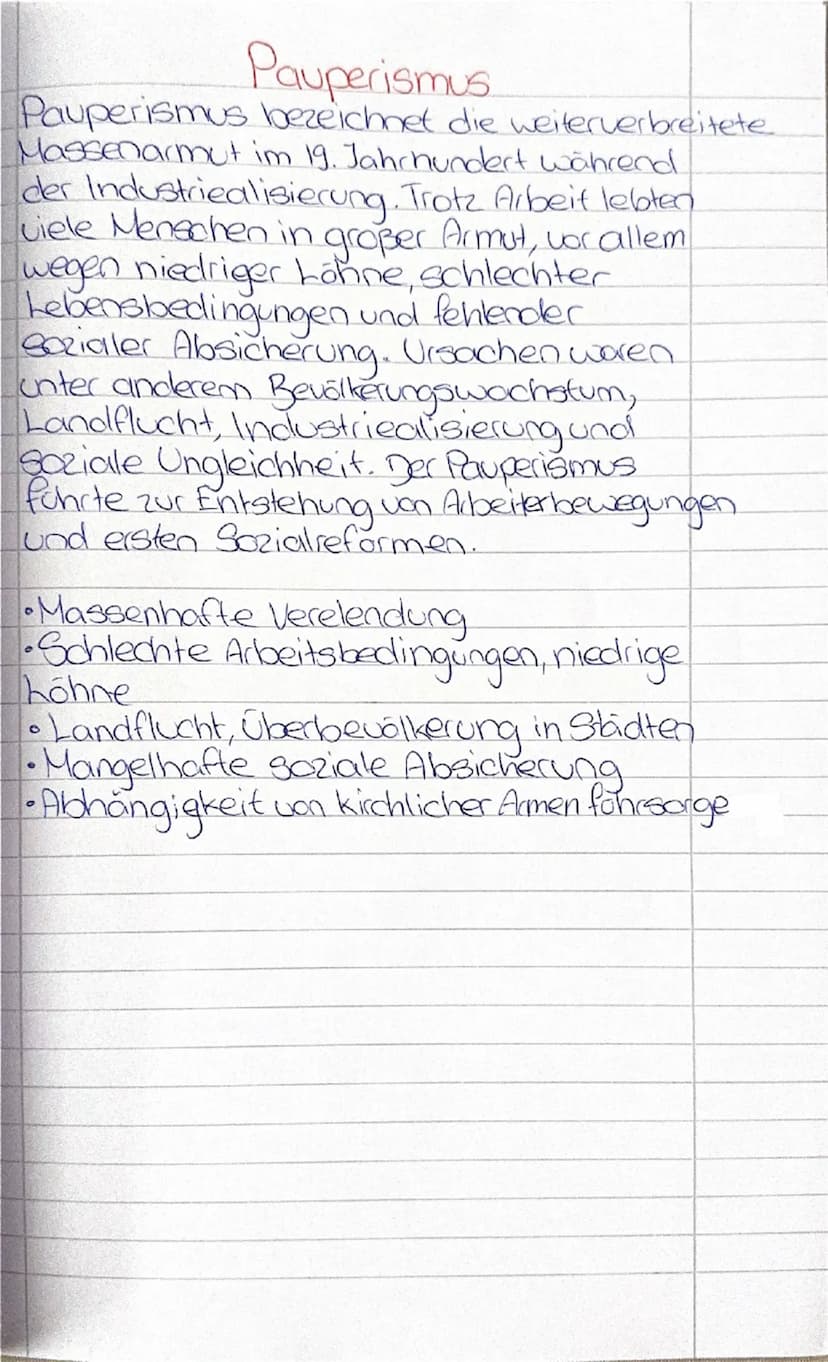 Pauperismus
Pauperismus bezeichnet die weiterverbreitete
Massenarmut im 19. Jahrhundert während
der Industriealisierung. Trotz Arbeit lebten
viele Menschen in großer Armut, vor allem
wegen niedriger Löhne, schlechter
Lebensbedingungen und fehlender
sozialer Absicherung. Ursachen waren
unter anderem Bevölkerungswachstum,
Landflucht, Industriealisierung und
soziale Ungleichheit. Der Pauperismus
führte zur Entstehung von Arbeiterbewegungen
und ersten Sozialreformen.
•Massenhafte Verelendung
•Schlechte Arbeitsbedingungen, niedrige
Löhne
•Landflucht, Überbevölkerung in Städten
•Mangelhafte soziale Absicherung
•Abhängigkeit von kirchlicher Armenführsorge